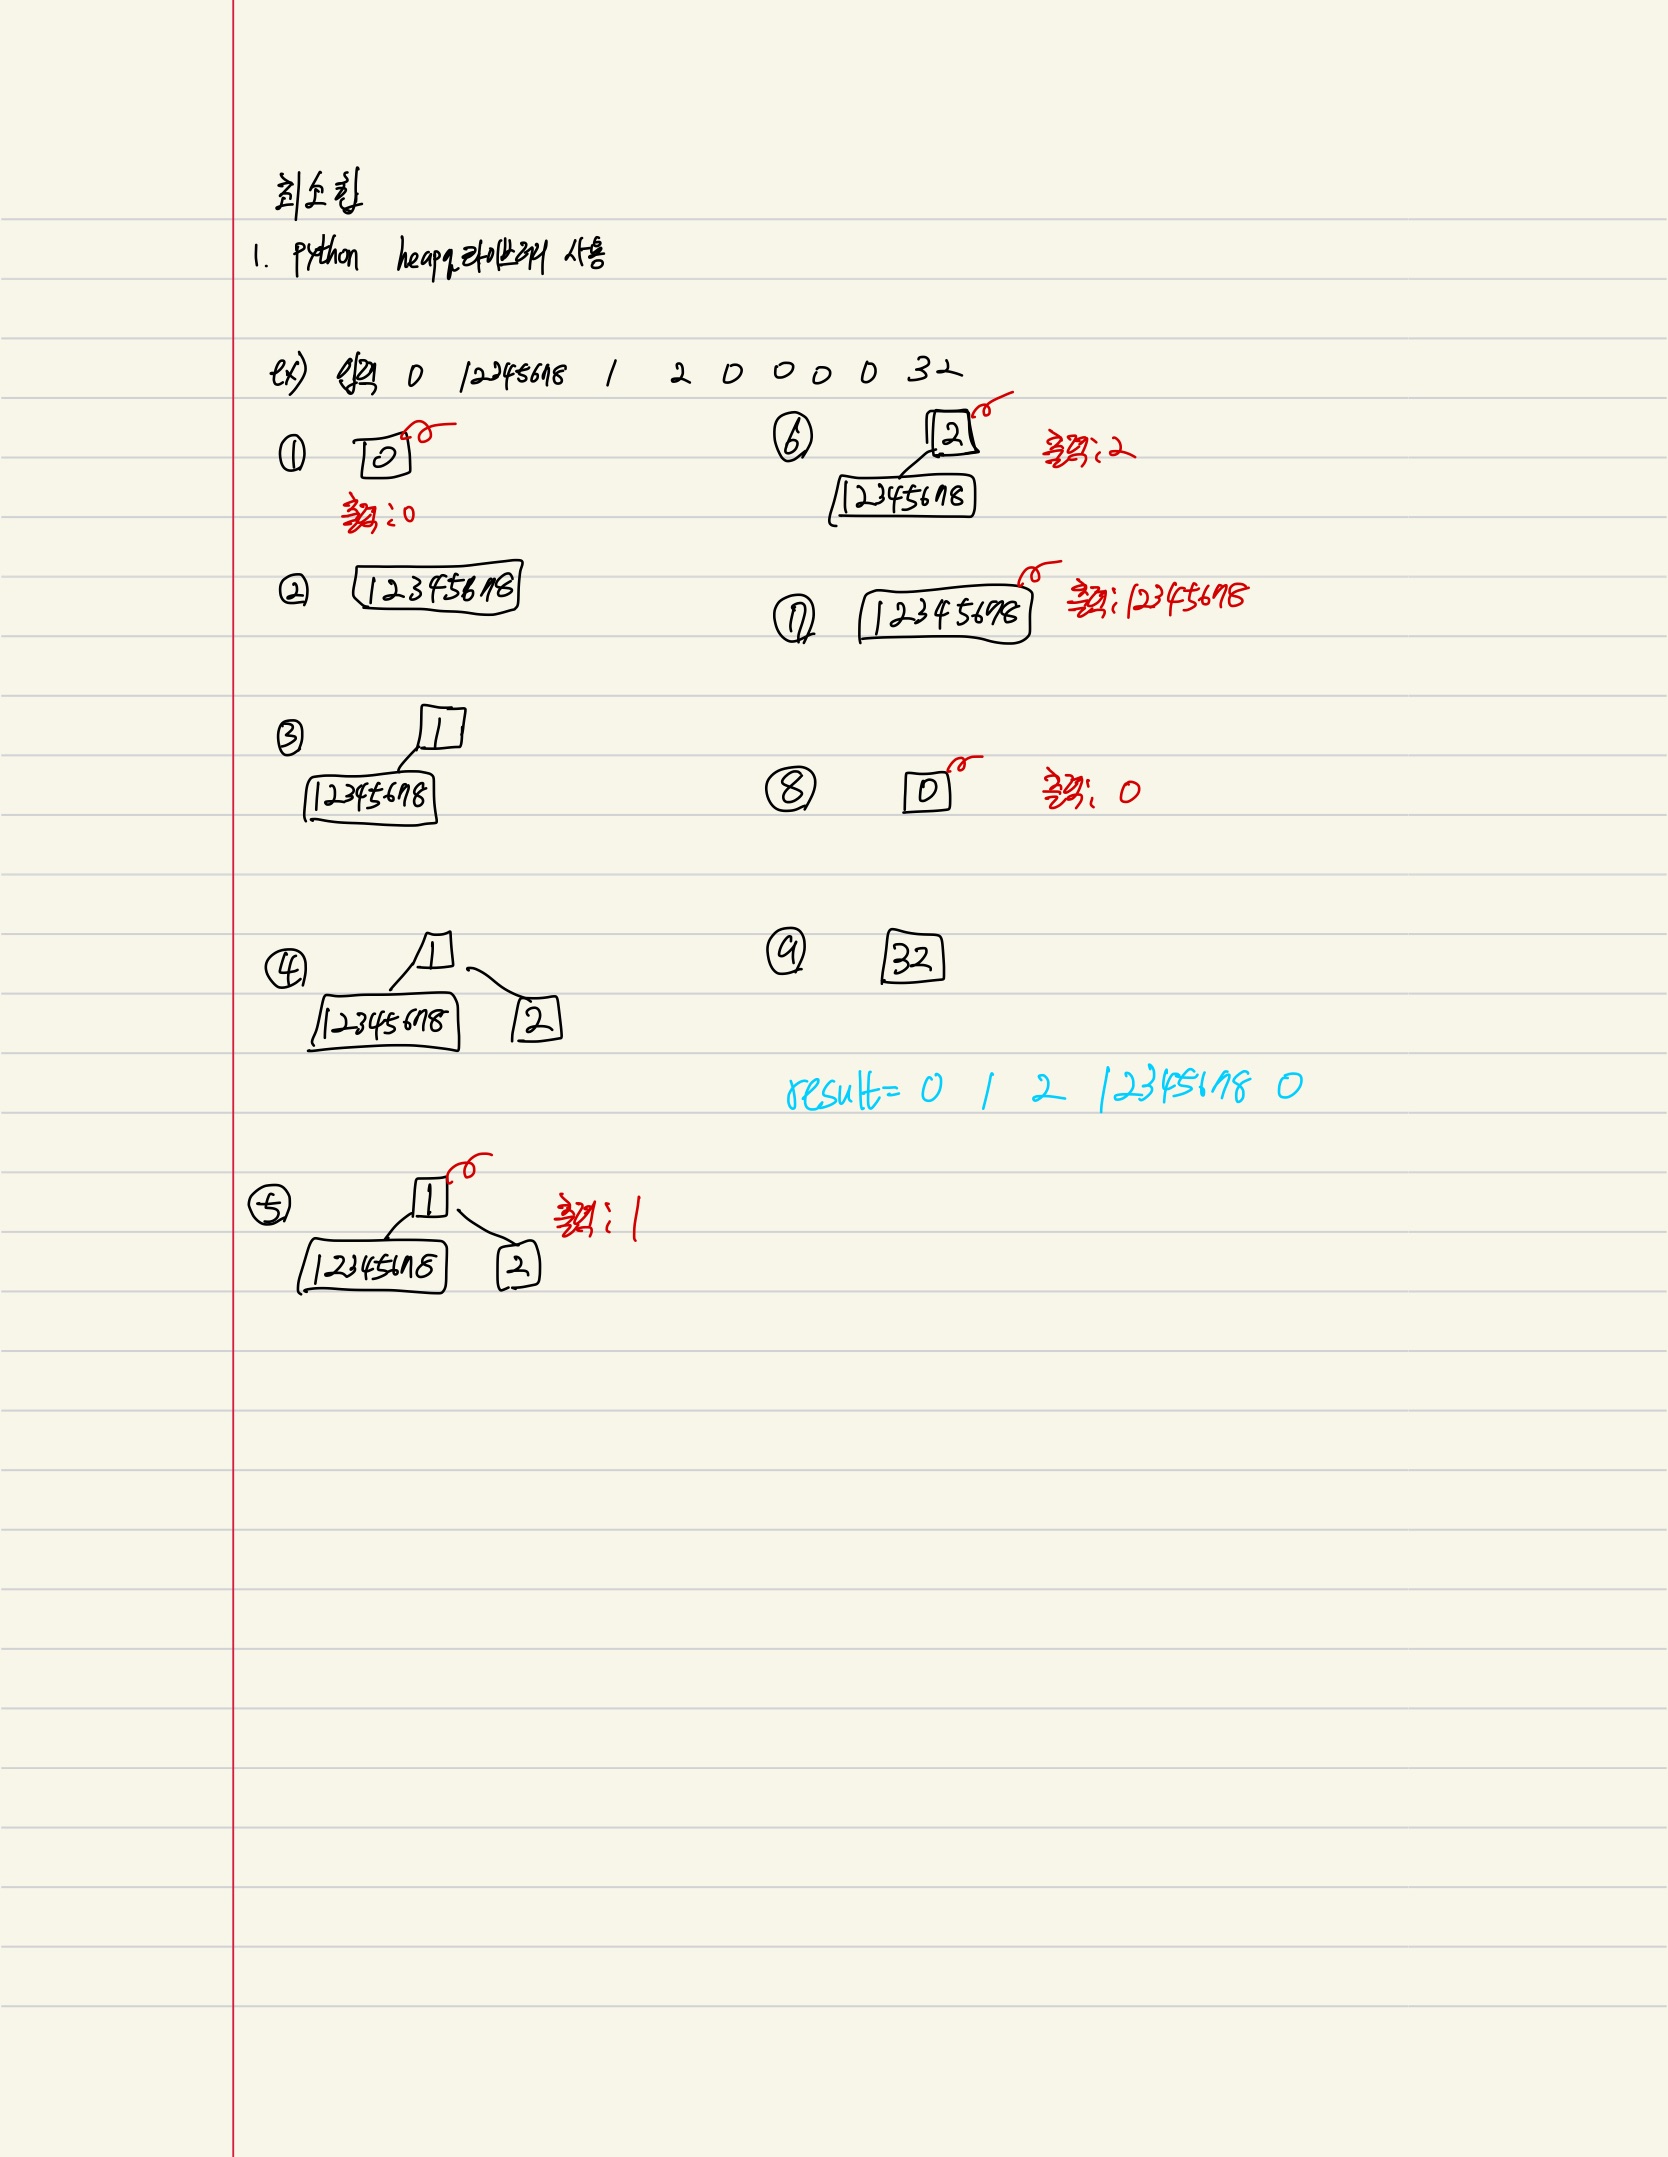 최소힙
1. python heapq라이브러리 사용
ex) 입력 0 12345678 1 2 0 0 0 0 32
① 0
출력: 0
② 12345678
③ 1
12345678
④ 1
12345678 2
⑤ 1 출력: 1
12345678 2
⑥ 2 출력: 2
12345678
⑦ 12345678 출력: 12345678
⑧ 0 출력: 0
⑨ 32
result= 0 1 2 12345678 0